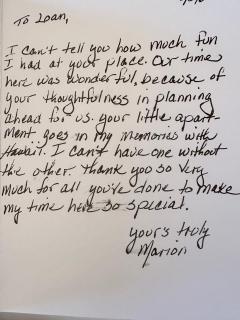 To Loan,
I can't tell you how much fun
I had at your place. Our time
here was wonderful, because of
your thoughtfulness in planning
ahead for us. your little apart-
ment goes in my memories with
Hawaii. I can't have one without
the other. thank you so very
much for all you've done to make
my time here so special.
yours truly
Marion